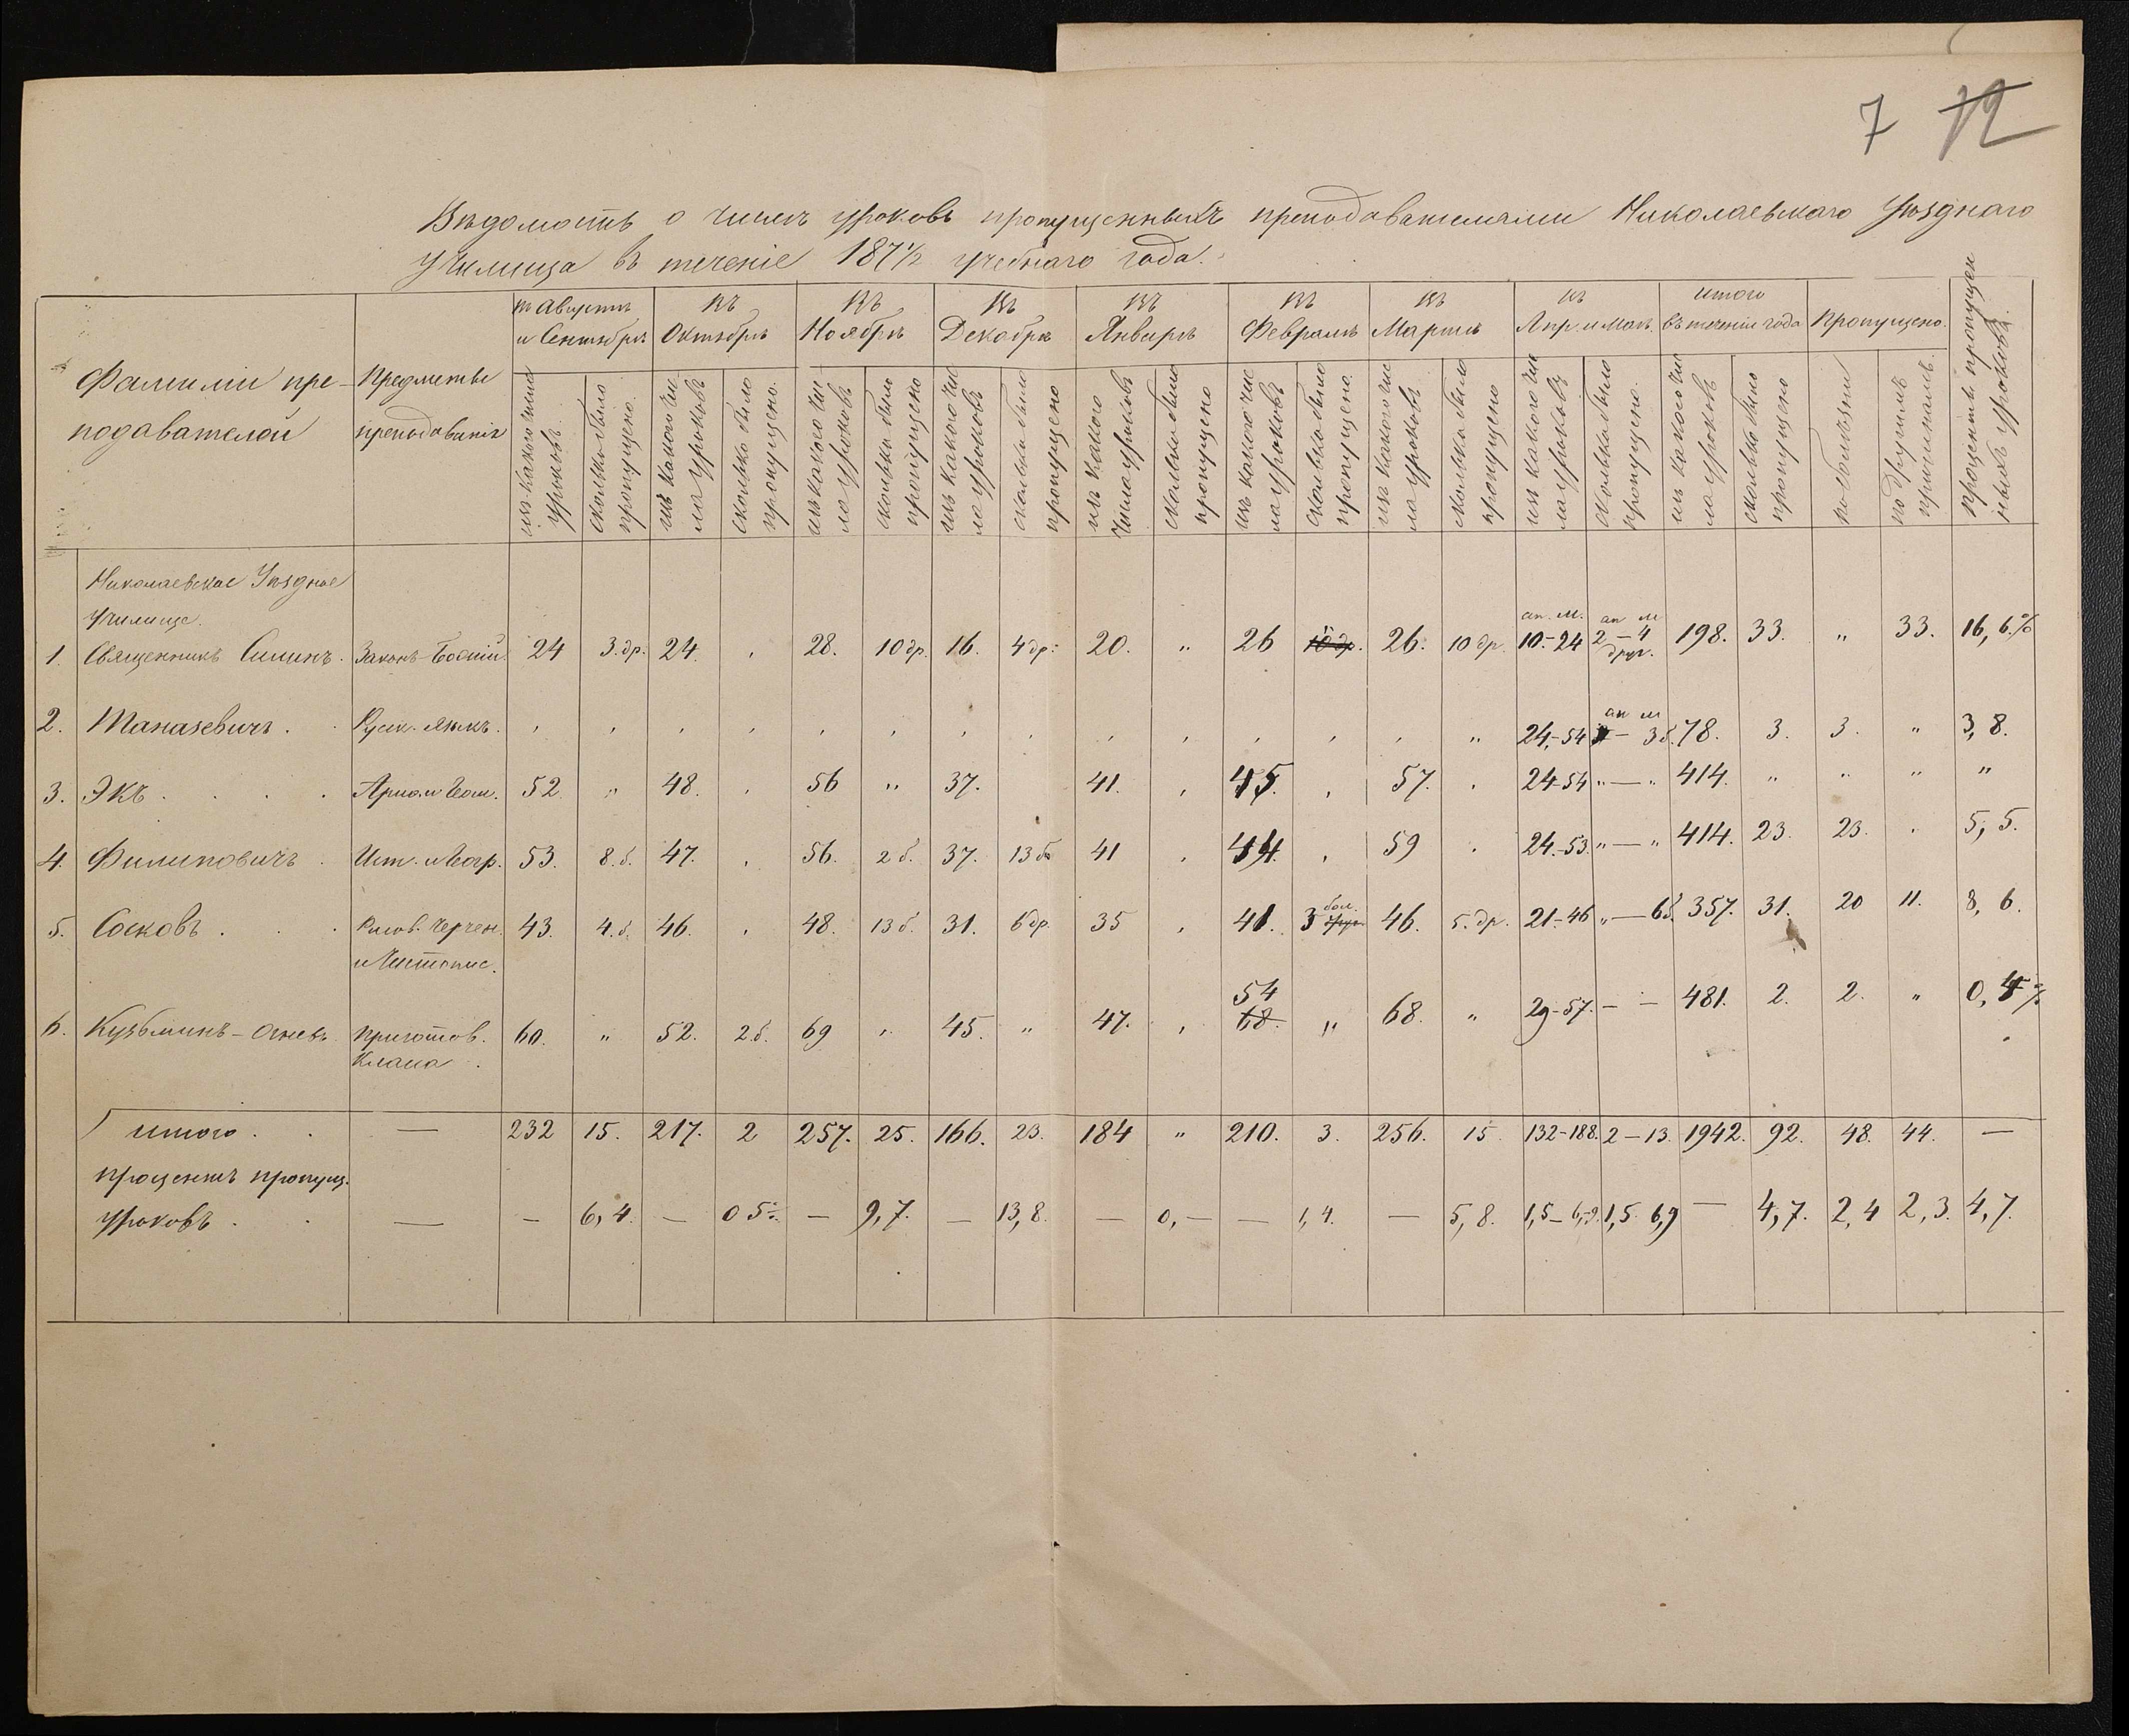 7 12
Вѣдомость о числѣ уроковъ пропущенныхъ преподавателями Николаевскаго Уѣзднаго
Училища въ теченіе 187 1/2 учебнаго года.
Фамиліи пре-
подавателей
Предметы
преподаванія
въ Августѣ
и Сентябрѣ
въ
Октябрѣ
въ
Ноябрѣ
въ
Декабрѣ
въ
Январѣ
въ
Февралѣ
въ
Мартѣ
въ
Апр. и Маѣ
итого
въ теченіи года
Пропущено.
процентъ пропущен
ныхъ уроковъ.
изъ какого числа
уроковъ
сколько было
пропущено.
изъ какого чис
ла уроковъ
сколько было
пропущено.
изъ какого чис
ла уроковъ
сколько было
пропущено
изъ какого чис
ла уроковъ
сколько было
пропущено
изъ какого
числа уроковъ
сколько было
пропущено
изъ какого чис
ла уроковъ
сколько было
пропущено.
изъ какого чис
ла уроковъ
сколько было
пропущено
изъ какого чис
ла уроковъ
сколько было
пропущено.
изъ какого чис
ла уроковъ
сколько было
пропущено
по болѣзни
по другимъ
причинамъ.
Николаевское Уѣздное
Училище.
ап. м. ап м
1. Священникъ Силинъ. Законъ-Божій. 24 3.др. 24. , 28. 10 др. 16. 4 др. 20. „ 26 10 др. 26. 10 др. 10-24 2-4 друг. 198. 33. „ 33. 16,6.%
ап м
2. Танасевичъ. Русск. языкъ. , , , , , , , , , , , , , „ 24-54 - 3 б. 78. 3. 3. „ 3,8.
3. Экъ. Ариѳм. и Геом. 52. „ 48. , 56 „ 37. 41. , 45. , 57. , 24-54 „—„ 414. „ „ „ „
4. Филиповичъ. Ист. и Геогр. 53. 8.б. 47. , 56. 2 б. 37. 13 б. 41 , 44. , 59 , 24-53. „—„ 414. 23. 23. , 5,5.
5. Сосковъ. Рисов. Черчен. 43. 4.б. 46. , 48. 13 б. 31. 6 др. 35 , 41. 3 бол. друг. 46. 5.др. 21-46 „—6 б. 357. 31. 20 11. 8,6.
и Чистопис.
54
6. Кузьминъ-Огневъ Приготов. 60. „ 52. 2.б. 69 „ 45. „ 47. , 68. „ 68. „ 29-57. - - 481. 2. 2. „ 0,4%
Класса.
итого. — 232 15. 217. 2 257. 25. 166. 23. 184 „ 210. 3. 256. 15 132-188. 2-13. 1942. 92. 48. 44. —
процентъ пропущ.
уроковъ. — - 6,4. — 0 5 — 9,7. — 13,8. — 0,— — 1,4. — 5,8. 1,5-6,9. 1,5 6,9 — 4,7. 2,4 2,3. 4,7.